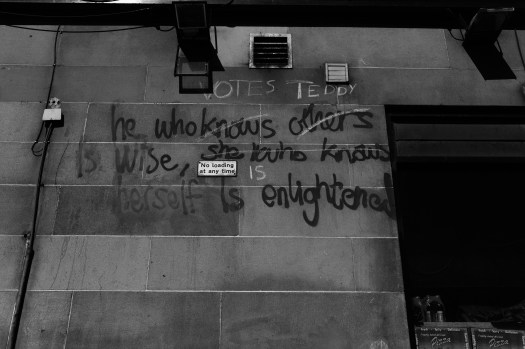 VOTES TEDDY
he who knows others
Is wise, she who knows
No loading
at any time
IS
herself Is enlightened